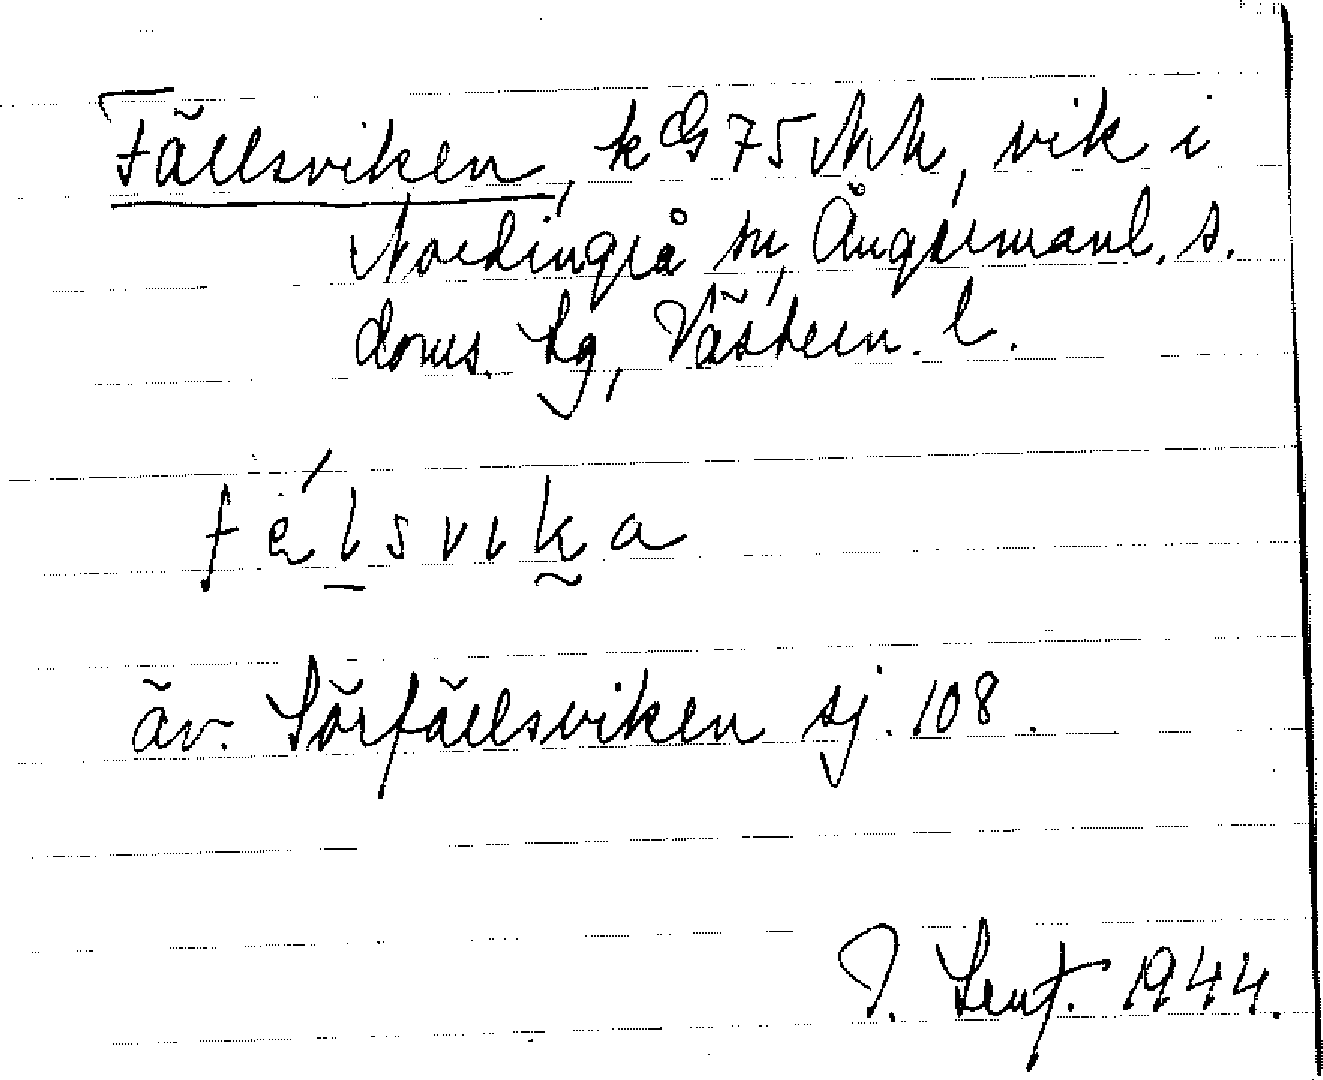 Fällsviken, k G 75 NM, vik i
Nordingrå sn, Ångermanl. s.
doms. tg, Västern. l.
fé̀lsvika
äv. Sörfällsviken sj. 108.
1944.